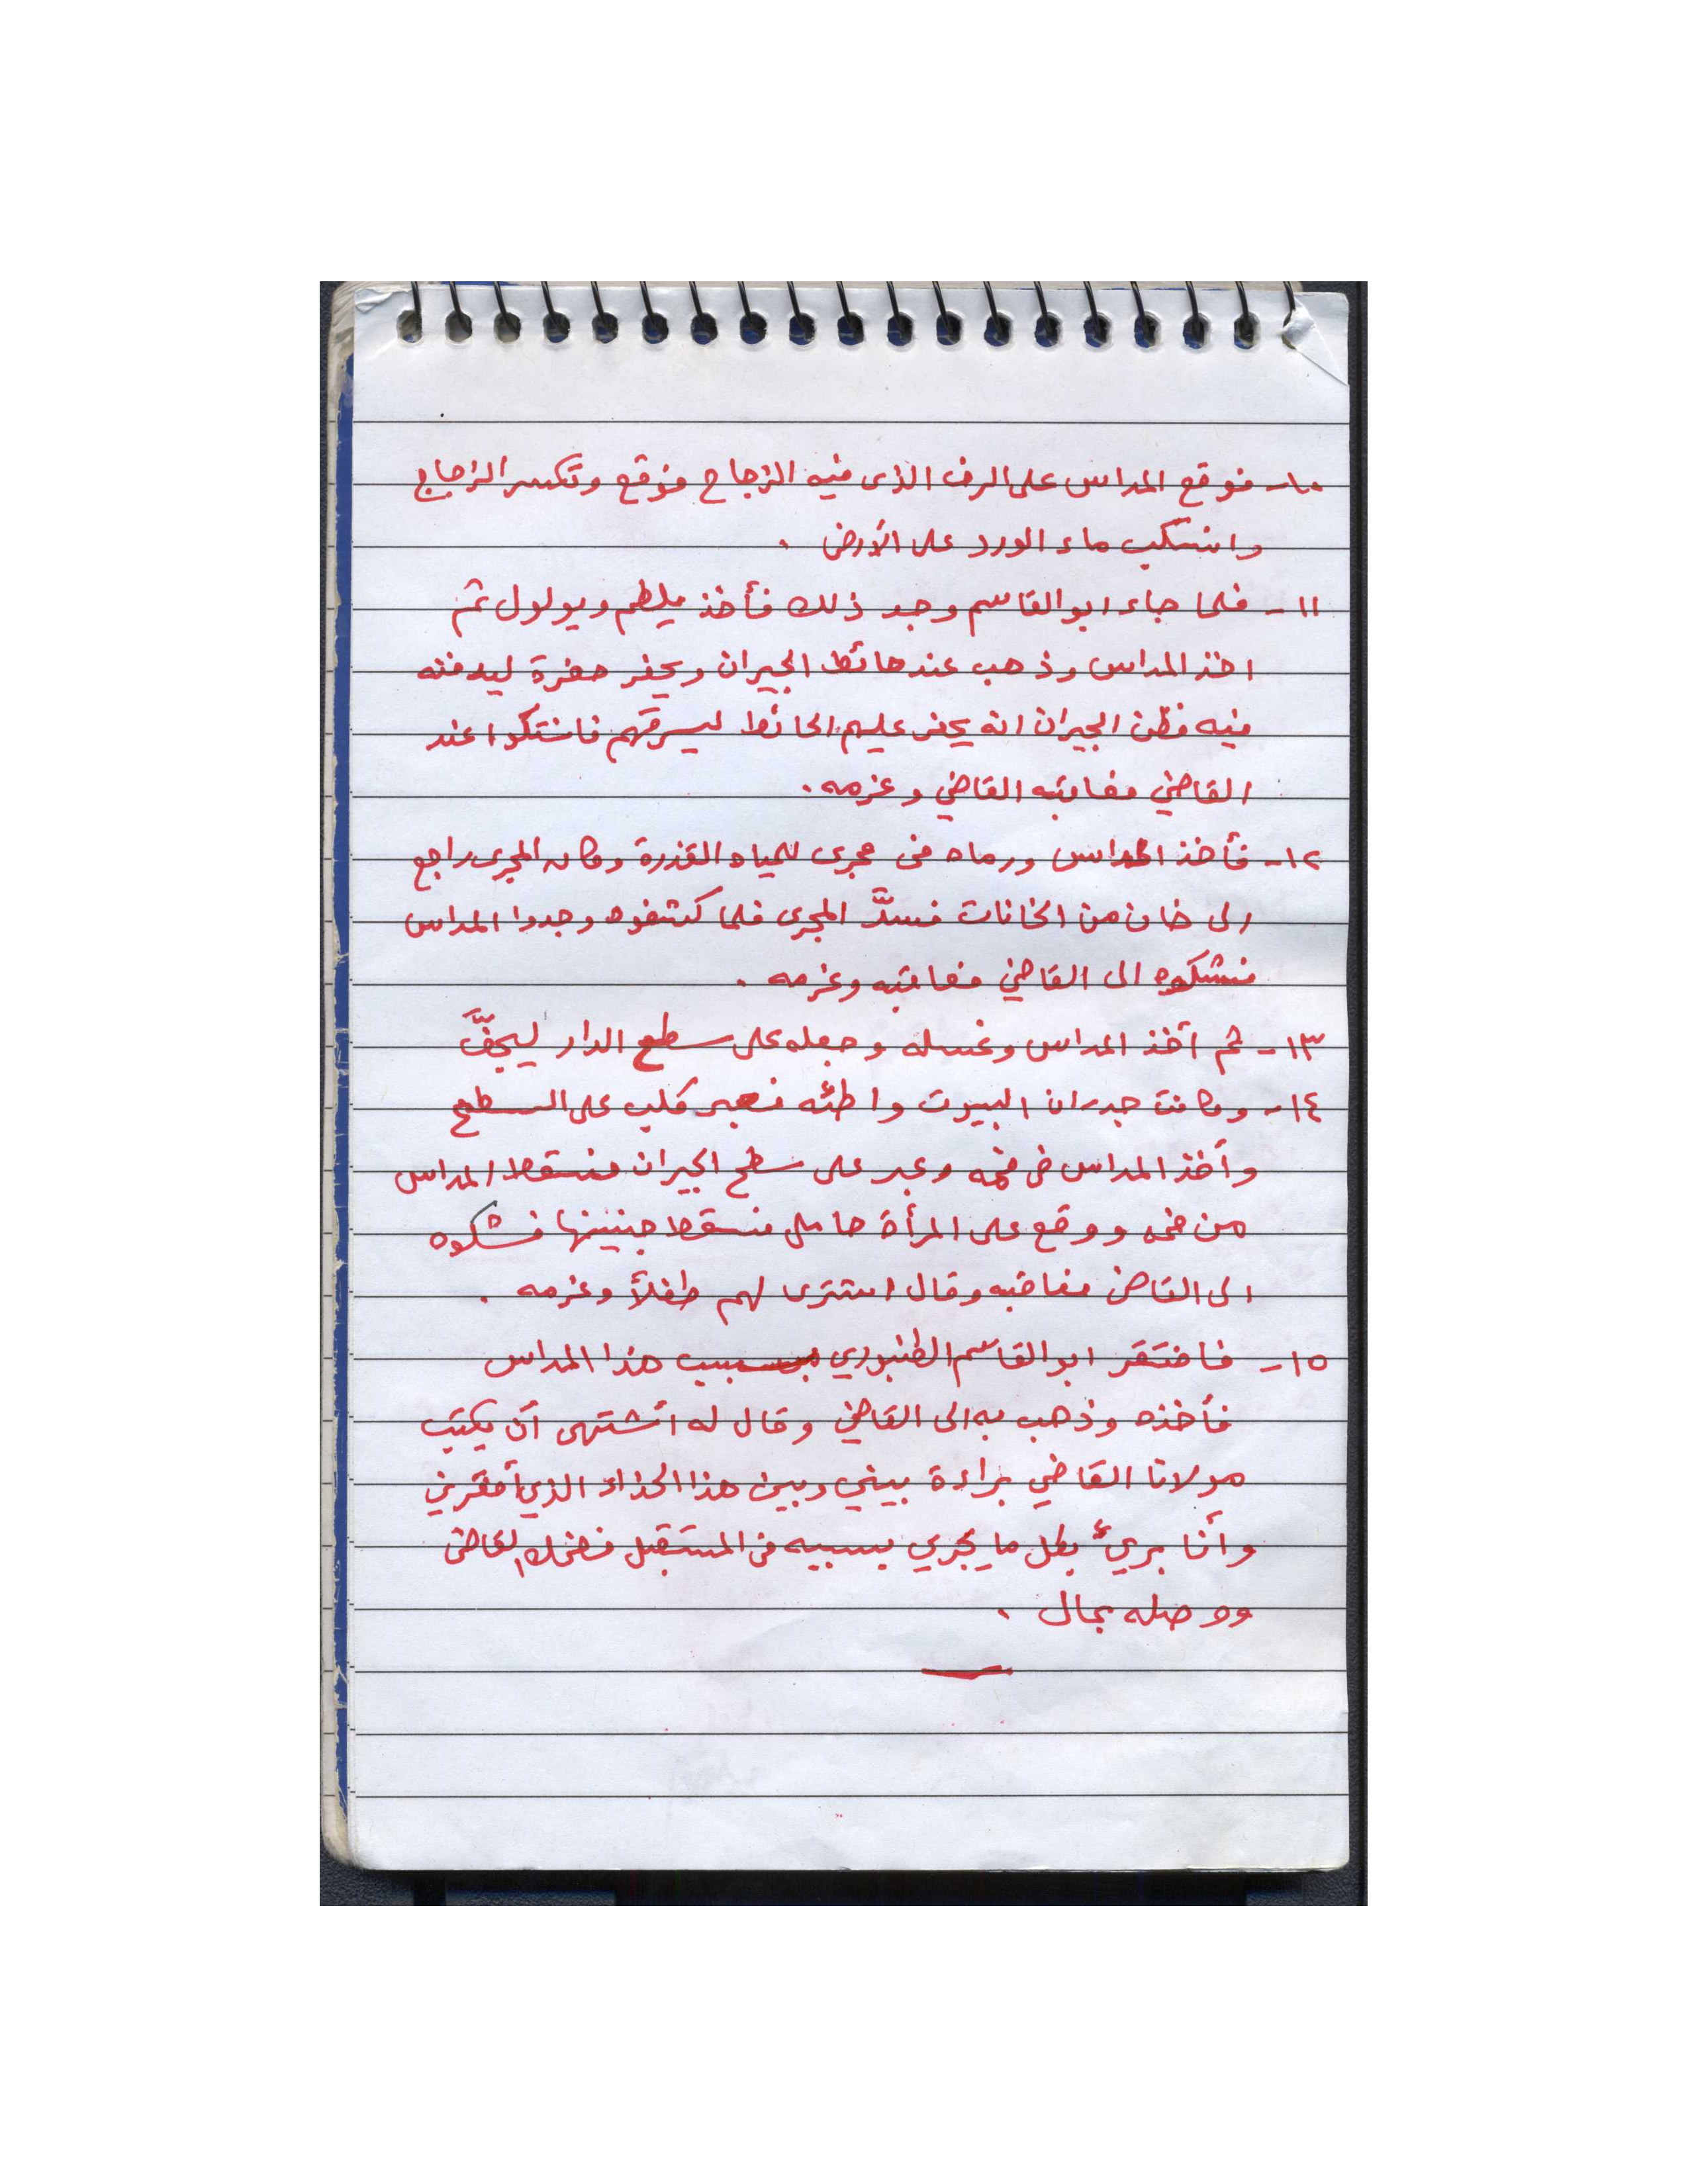 ١٠- فوقع المداس على الرف الذى فيه الزجاج فوقع وتكسر الزجاج
وانسكب ماء الورد على الأرض .
١١- فلما جاء ابو القاسم وجد ذلك فأخذ يلطم ويولول ثم
اخذ المداس وذهب عند حائط الجيران ويحفر حفرة ليدفنه
فيه فظن الجيران انه يحفر عليهم الحائط ليسرقهم فاشتكوا عند
القاضي فعاقبه القاضي وغرمه .
١٢- فأخذ المداس ورماه فى مجرى للمياه القذرة وكان المجرى راجع
الى خان من الخانات فسدَّ المجرى فلما كشفوه وجدوا المداس
فشكوه الى القاضي فعاقبه وغرمه .
١٣- ثم أخذ المداس وغسله وجعله على سطح الدار ليجفَّ
١٤- وكانت جدران البيوت واطئه فعبر كلب على السطح
وأخذ المداس فى فمه وعبر على سطح الجيران فسقط المداس
من فمه ووقع على المرأة حامل فسقط جنينها فشكوه
الى القاضى فعاقبه وقال اشترى لهم طفلاً وغرمه .
١٥- فافتقر ابو القاسم الطنبوري بسبب هذا المداس
فأخذه وذهب به الى القاضي وقال له أشتهى أن يكتب
مولانا القاضي براءة بيني وبين هذا الحذاء الذي أفقرني
وأنا بريئ بكل ما يجري بسببه فى المستقبل فضحك القاضى
ووصله بمال .